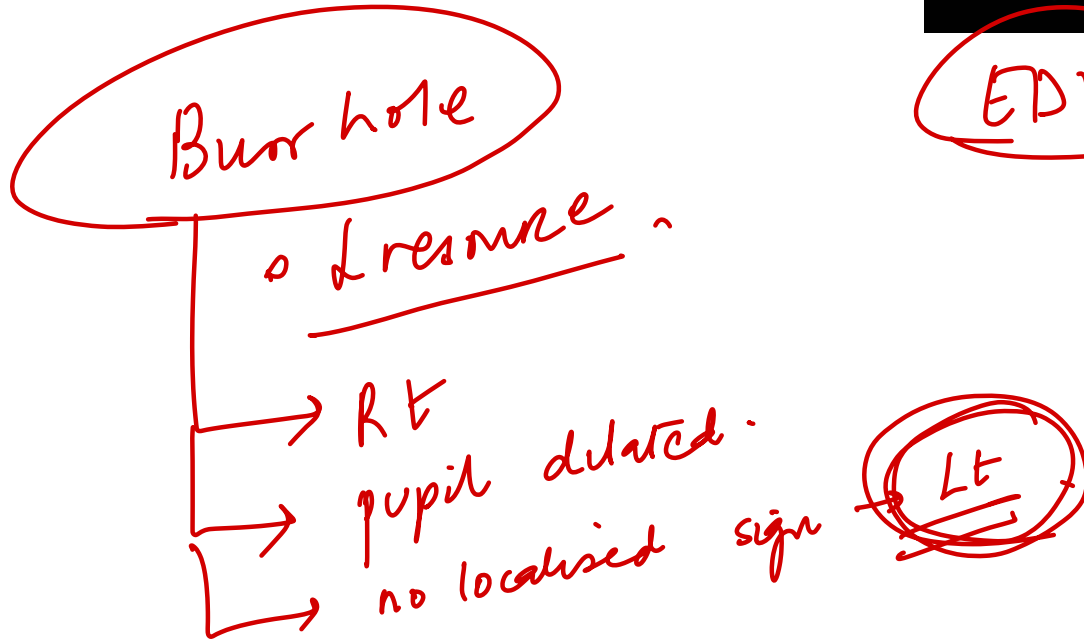 Burr hole
ED
↓ resource
Rt
pupil dilated.
no localised sign → Lt